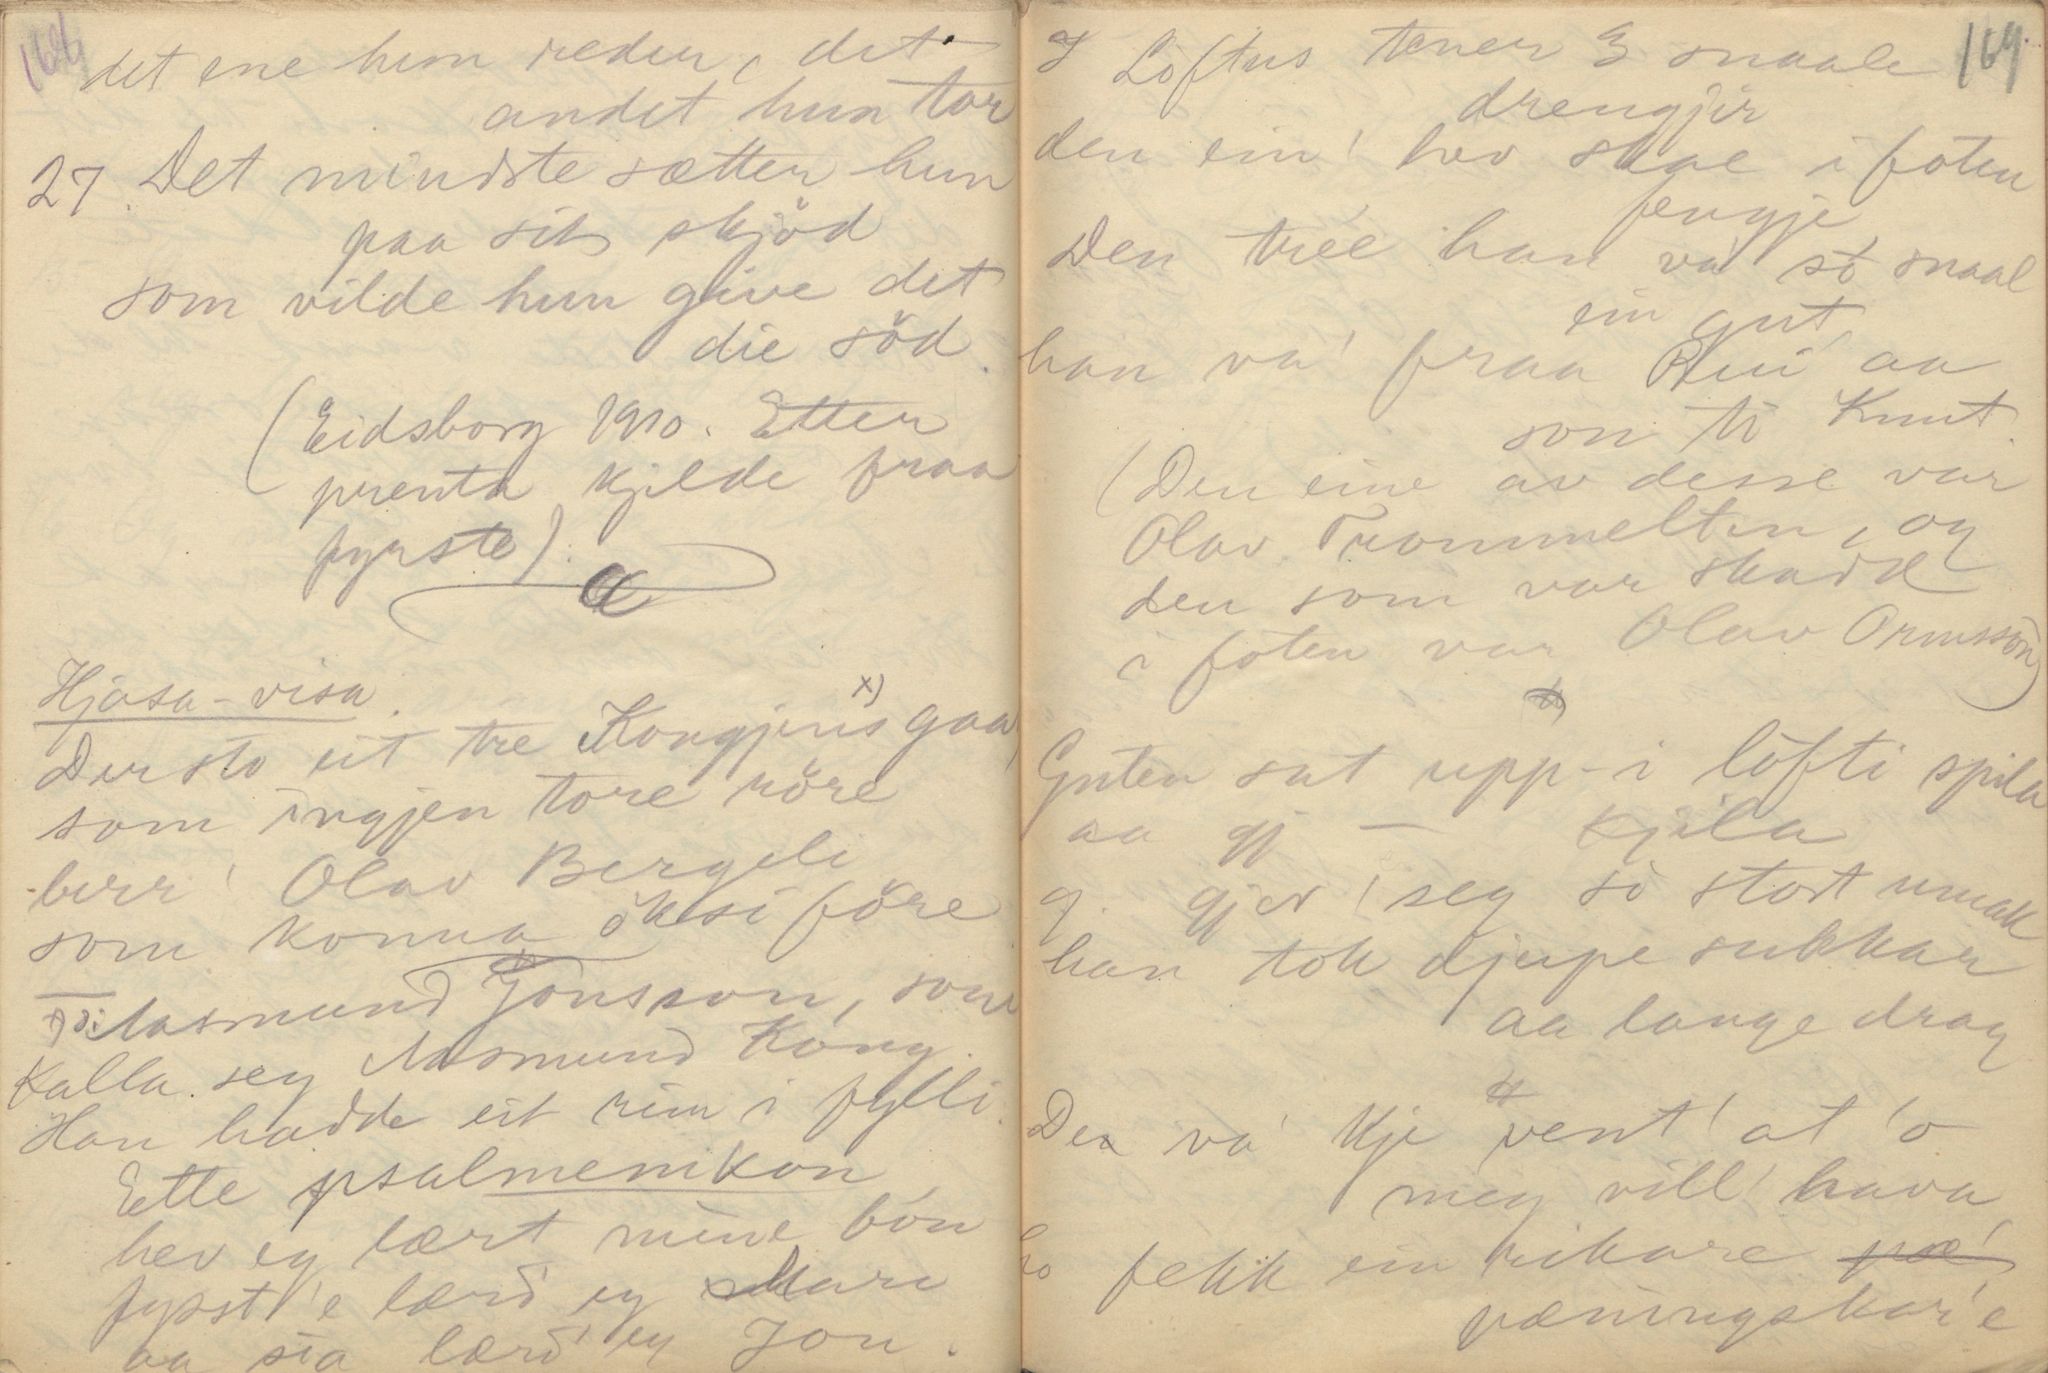 det ene hun reder, det
andet hun tar
27. Det mindste sætter hun
paa sit skjöd
som vilde hun give det
die söd.
(Eidsborg 1910. Etter
prenta kjilde fraa
fyrste).
Hjasa-visa.
Der sto eit tre Kongjens x) gaa
som ingjen tore röre
berr' Olav Bergeli
som konna öksi före
x) o: Aasmund Jönsson, som
kalla seg Aasmund Kong.
Han hadde eit rim i fylli.
Ette psalmenikon
hev eg lært mine bön
fysst 'e lærd' eg Mari
aa sia lærd' eg Jon.
169
I Löftus tener 3 snaale
drengjir
den ein' hev skae i foten
fengje
Den tree han va' so snaal
ein gut
han va' fraa Rui aa
son ti Knut.
(Den eine av desse var
Olav Trommeltin, og
den som var skadd
i foten var Olav Ormsson)
Guten sat upp-i löfti spila
aa gj — kjila
gjer' seg so stort umak
han tok djupe sukkar
aa lange drag
De va' kje vent' at 'o
meg vill' hava
ho fekk ein rikare pæ'
pæningskar'e